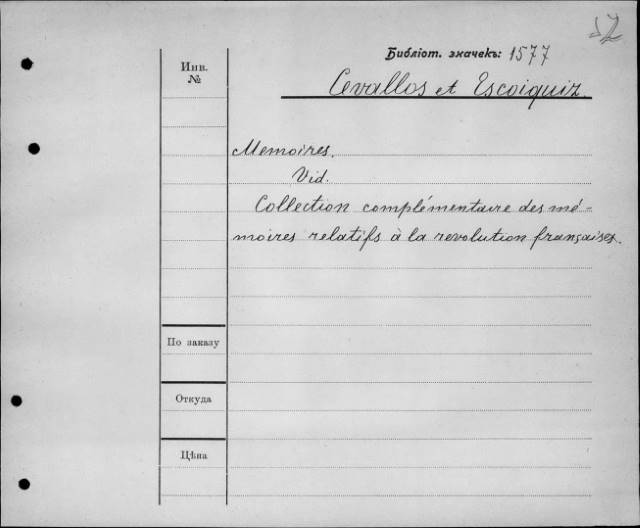 Библіот. значекъ: 1577
Инв.
№
Cevallos et Escoiquiz.
Memoires.
Vid.
Collection complémentaire des mé-
moires relatifs à la revolution françaises.
По заказу
Откуда
Цѣна